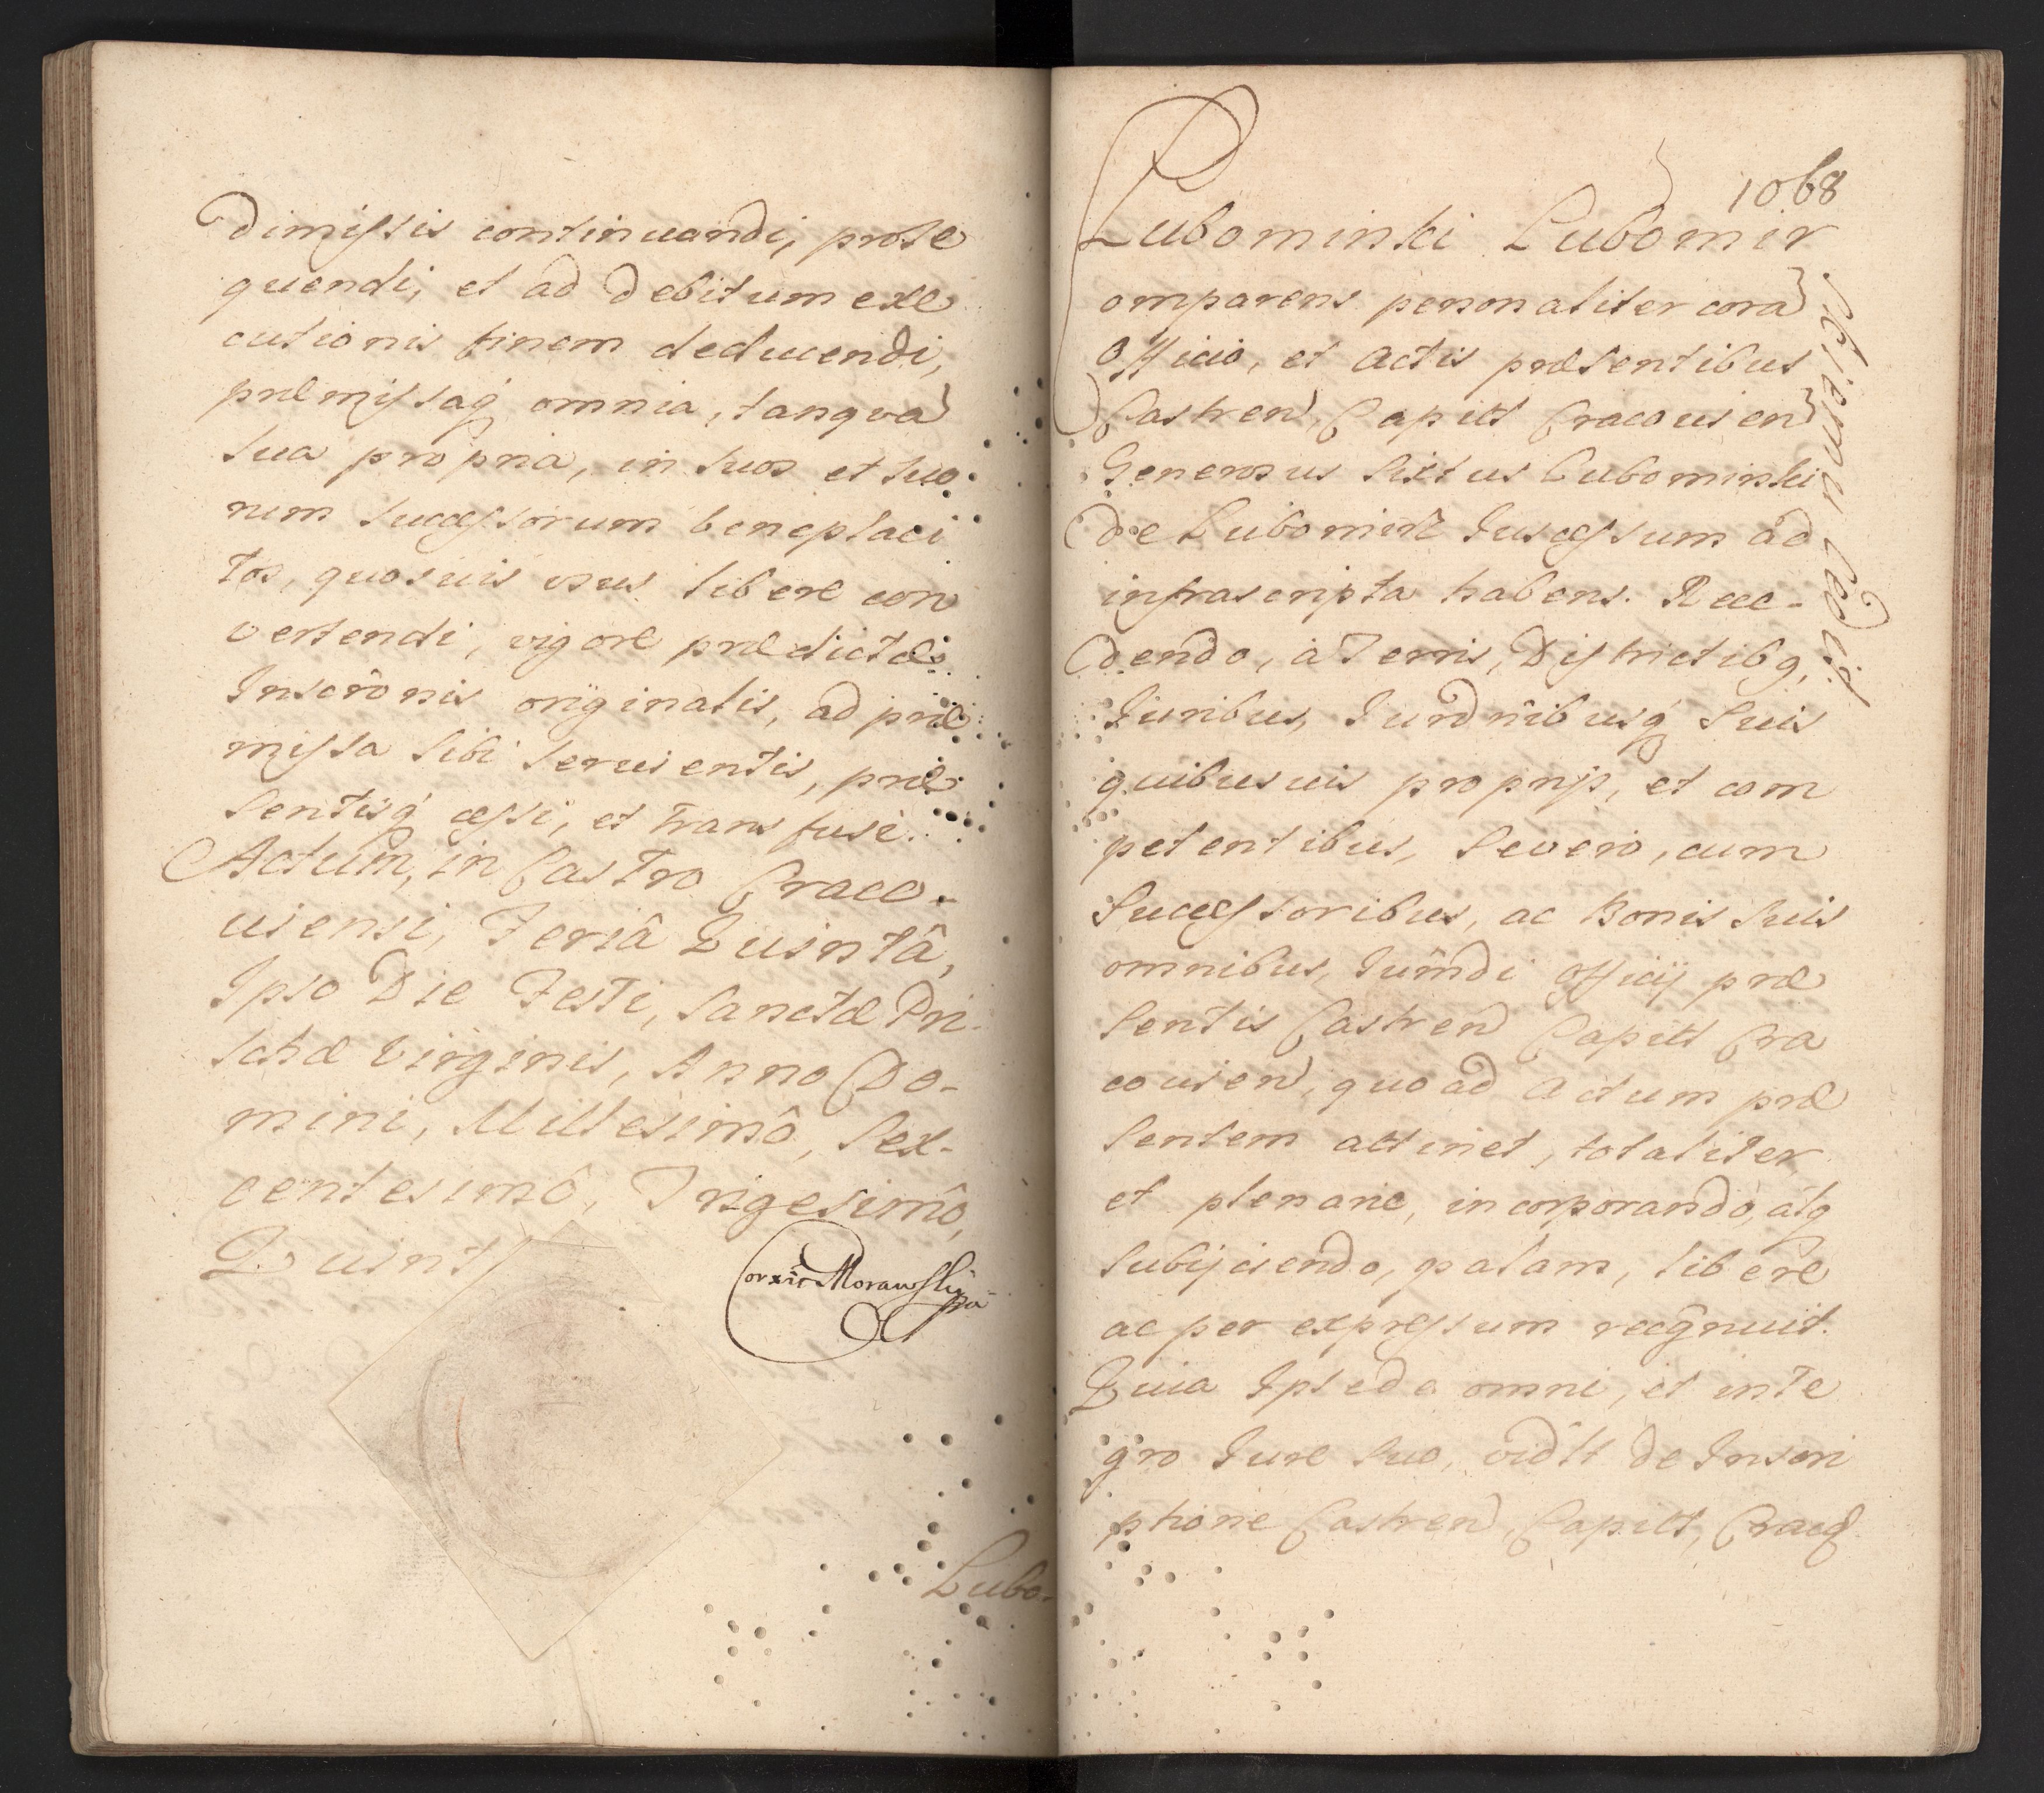 Dimissis continuandi, prose
quendi, et ad debitum exe
cutionis finem deducendi,
præmissaq́ omnia, tanqua͂
sua propria, in suos et suo
rum successorum beneplaci
tos, quosuis usus libere con
vertendi, vigore prædictæ
Inscro̅nis originalis, ad præ
missa sibi seruientis, præ
sentisq́ cessi, et transfusi.
Actum, in Castro Craco-
uiensi, Feriâ Quintâ,
Ipso Die Festi, Sanctæ Pri
schæ Virginis, Anno Do-
mini, Millesimô, Sex-
centesimô, Trigesimô,
Quint
Morawski
Lubo-
1068
Lubomirski Lubomir
omparens personaliter cora͂
Officio, et Actis præsentibus
Castren Capitt Cracouien
Generosus Sixtus Lubomirski
de Lubomir Suscessum ad
infrascripta habens. Rece-
dendo, à Terris, Districtibq,
Iuribus, Iurdnibusq́ Suis
quibusuis proprijs, et com
petentibus, Severò, cum
Successoribus, ac Bonis suis
omnibus, Iu̅r̅di Officij præ
sentis Castren Capitt Cra
couien, quo ad Actum præ
sentem attinet, totaliter
et plenarie, incorporando, atq
subijciendo, palam, libere
ac per expressum reco̅gnuit.
Quia Ipse de omni, et inte
gro Iure suo, vidlt de Inscri
ptione Castren, Capitt, Cracq